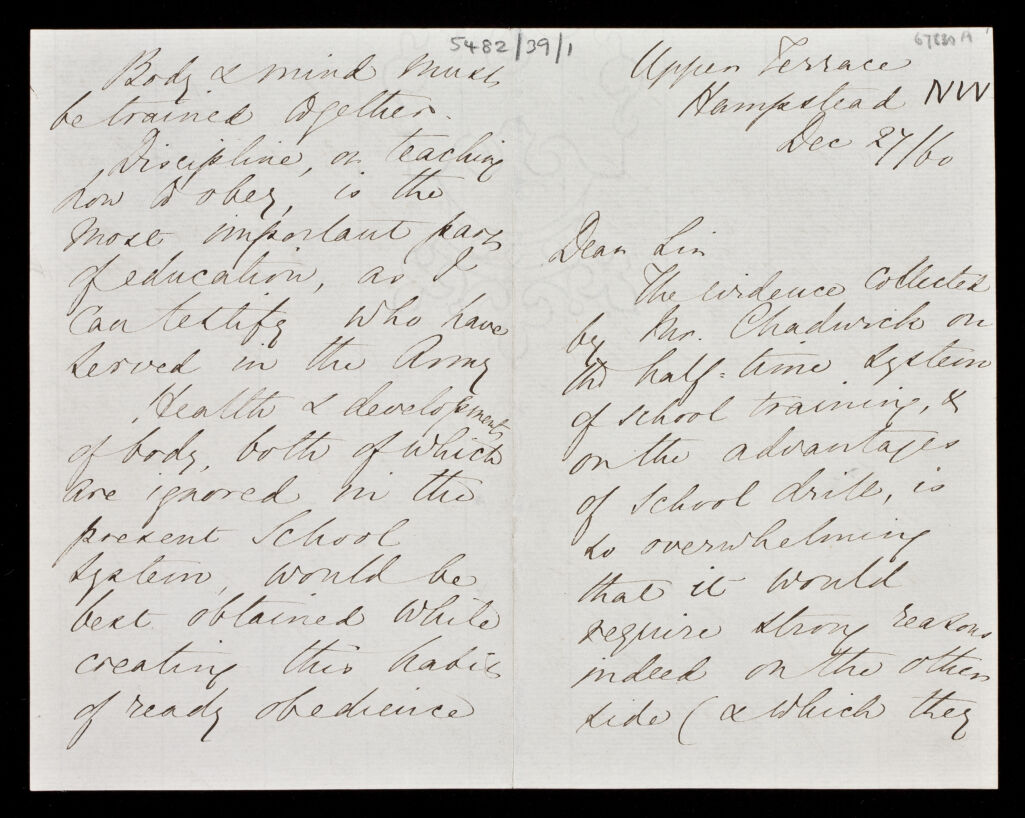 5482/39/1
67830 A
Body & mind must
be trained together.
Discipline, or teaching
how to obey, is the
most important part
of education, as I
can testify who have
served in the Army
Health & development
of body, both of which
are ignored in the
present School
system, would be
best obtained while
creating this habit
of ready obedience
Upper Terrace
Hampstead NW
Dec 27/60
Dear Sir
The evidence collected
by Mr. Chadwick on
the half-time system
of school training, &
on the advantages
of School drill, is
so overwhelming
that it would
require strong reasons
indeed on the other
side (& which they